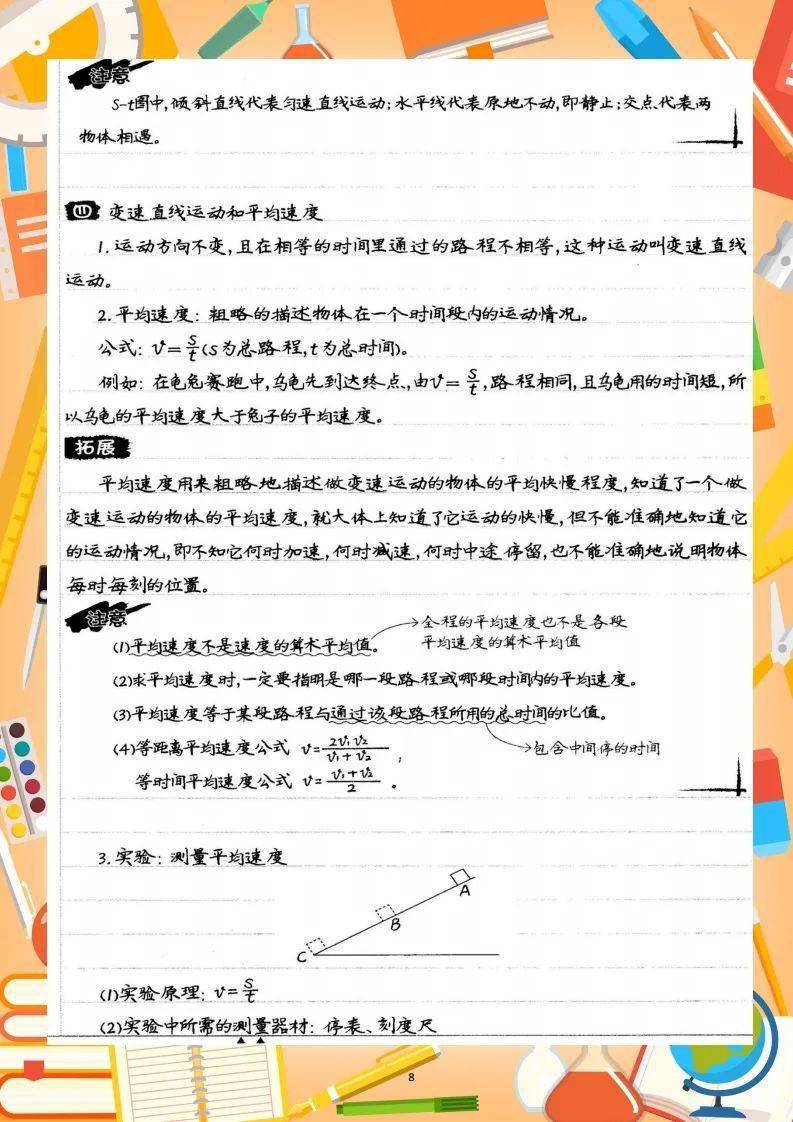 注意
S-t图中,倾斜直线代表匀速直线运动;水平线代表原地不动,即静止;交点代表两
物体相遇。
四 变速直线运动和平均速度
1.运动方向不变,且在相等的时间里通过的路程不相等,这种运动叫变速直线
运动。
2.平均速度:粗略的描述物体在一个时间段内的运动情况。
公式:v=s/t(s为总路程,t为总时间)。
例如:在龟兔赛跑中,乌龟先到达终点,由v=s/t,路程相同,且乌龟用的时间短,所
以乌龟的平均速度大于兔子的平均速度。
拓展
平均速度用来粗略地描述做变速运动的物体的平均快慢程度,知道了一个做
变速运动的物体的平均速度,就大体上知道了它运动的快慢,但不能准确地知道它
的运动情况,即不知它何时加速,何时减速,何时中途停留,也不能准确地说明物体
每时每刻的位置。
注意
(1)平均速度不是速度的算术平均值。
全程的平均速度也不是各段
平均速度的算术平均值
(2)求平均速度时,一定要指明是哪一段路程或哪段时间内的平均速度。
(3)平均速度等于某段路程与通过该段路程所用的总时间的比值。
包含中间停的时间
(4)等距离平均速度公式 v=2v₁v₂/(v₁+v₂),
等时间平均速度公式 v=(v₁+v₂)/2。
3.实验:测量平均速度
A
B
C
(1)实验原理:v=s/t
(2)实验中所需的测量器材:停表、刻度尺
8